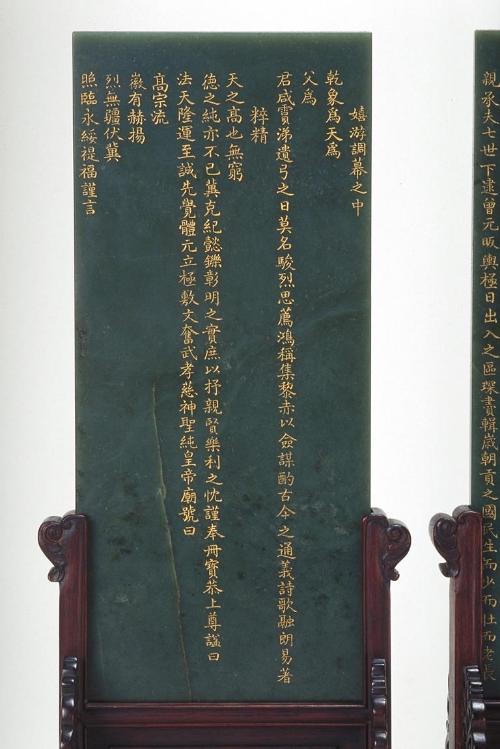 親承夫七世下逮曾元眡輿極日出入之區琛賮輯歲朝貢之國民生而少而壯而老長
嬉游調幕之中
乾象爲天爲
父爲
君咸霣涕遺弓之日莫名駿烈思薦鴻稱集黎赤以僉謀酌古今之通義詩歌融朗易著
粹精
天之高也無窮
德之純亦不已冀克紀懿鑠彰明之實庶以抒親賢樂利之忱謹奉冊寶恭上尊諡曰
法天隆運至誠先覺體元立極敷文奮武孝慈神聖純皇帝廟號曰
高宗流
徽有赫揚
烈無疆伏冀
照臨永綏禔福謹言